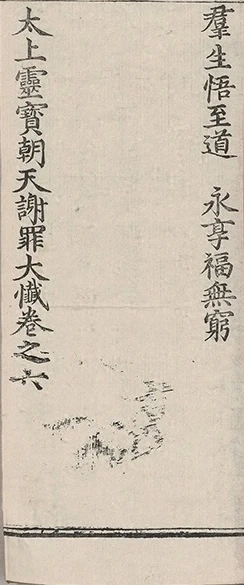 羣生悟至道　永享福無窮
太上靈寶朝天謝罪大懺卷之六